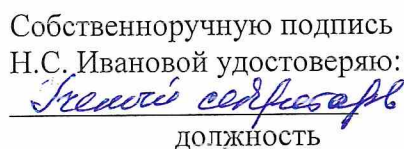 Собственноручную подпись
Н.С. Ивановой удостоверяю:
Ученый секретарь
должность